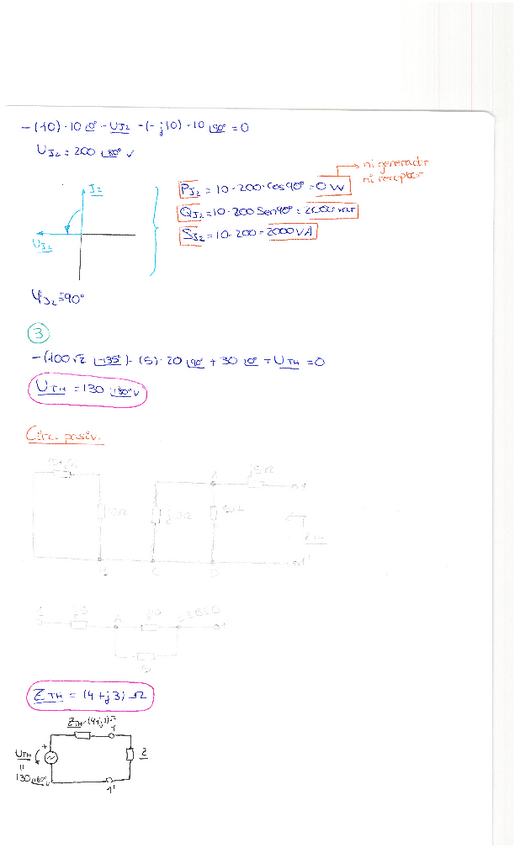 -(-10)·10∠0° - U_J2 - (-j10)·10∠90° = 0
U_J2 = 200∠180° V
J2
U_J2
P_J2 = 10·200·cos90° = 0 W → ni generador ni receptor
Q_J2 = 10·200 Sen90° = 2000 var
S_J2 = 10·200 = 2000 VA
φ_J2 = 90°
③
-(100√2 ∠-135°) - (5)·20∠90° + 30∠0° - U_TH = 0
U_TH = 130∠180° V
Circ. pasiv.
A
j5Ω
B
C
D
A
Z_TH = (4+j3) Ω
Z_TH=(4+j3)Ω
1
U_TH
+
Z
=
130∠180° V
1'